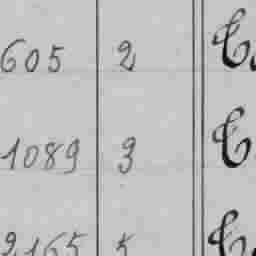 605 2
1089 3
2165 5